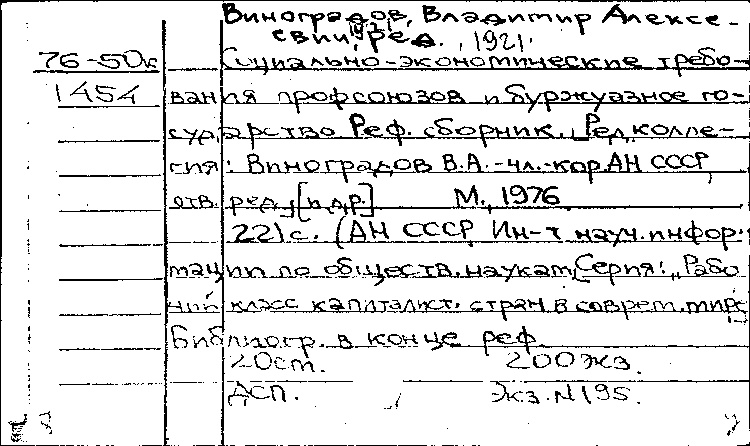 Виноградов, Владимир Алексе-
евич, ред., 1921.
76-50к Социально-экономические требо-
1454 вания профсоюзов и буржуазное го-
сударство Реф. сборник. Ред. колле-
гия: Виноградов В.А.-чл.-кор.АН СССР,
отв. ред., [и др.] М., 1976.
221с. (АН СССР. Ин-т науч. инфор-
мации по обществ. наукам. Серия: „Рабо
чий класс капиталист. стран в соврем. мире
Библиогр. в конце реф.
20ст. 200экз.
ДСП. Экз. N195.